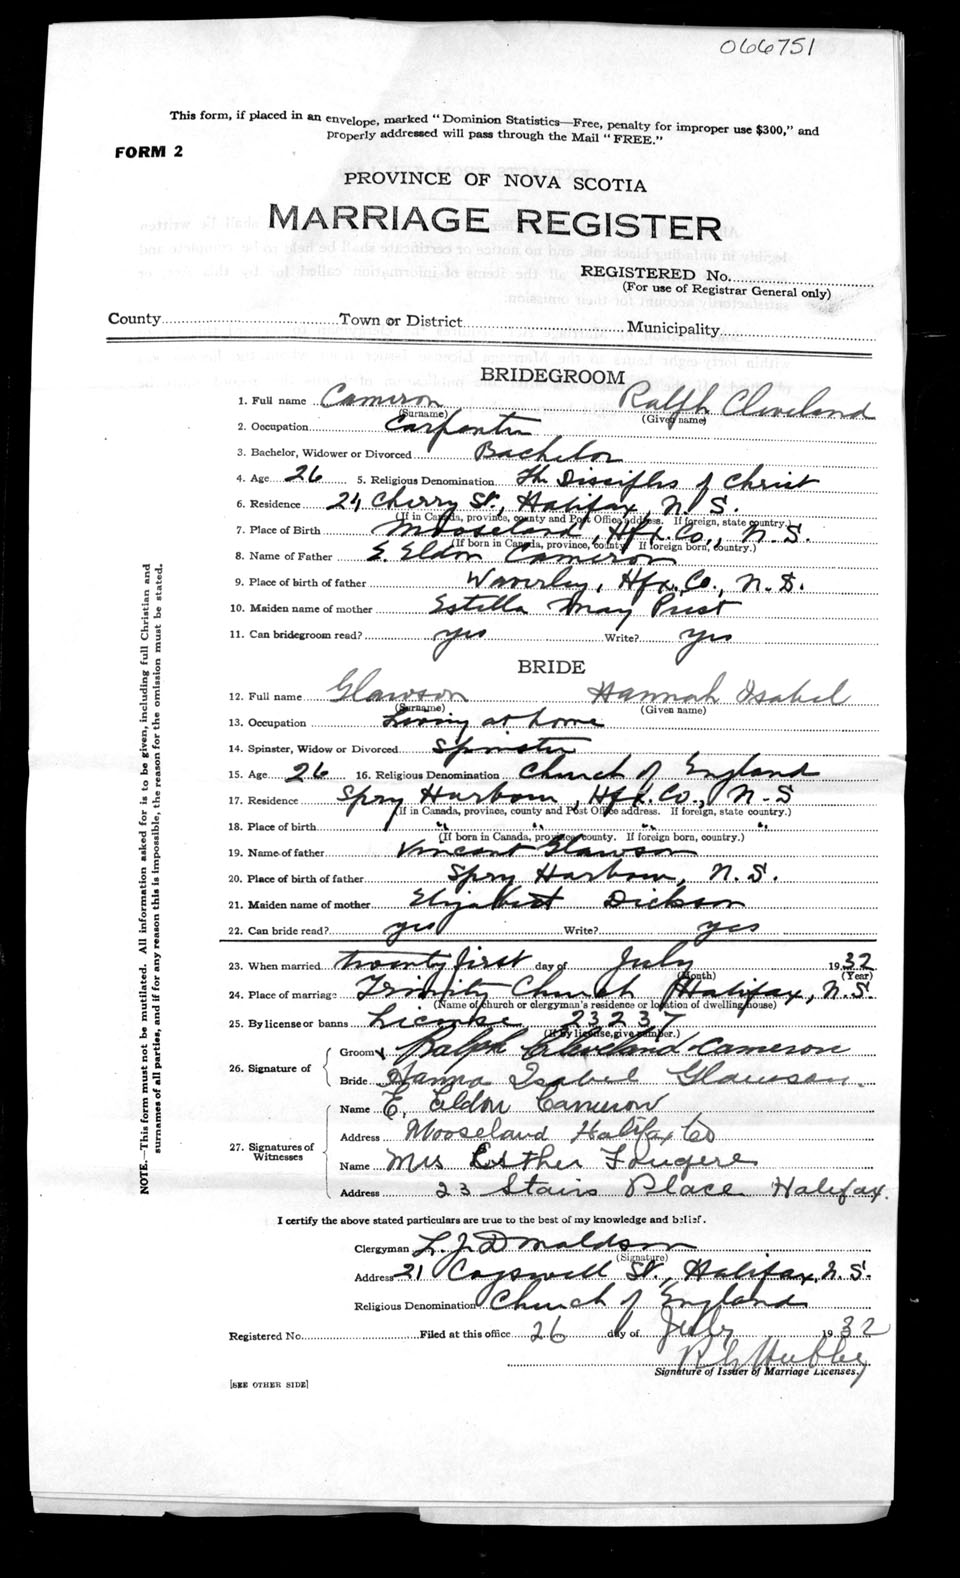 066751
This form, if placed in an envelope, marked "Dominion Statistics—Free, penalty for improper use $300," and
properly addressed will pass through the Mail "FREE."
FORM 2
PROVINCE OF NOVA SCOTIA
MARRIAGE REGISTER
REGISTERED No.
(For use of Registrar General only)
County Town or District Municipality
BRIDEGROOM
1. Full name Cameron Ralph Cleveland
(Surname) (Given name)
2. Occupation Carpenter
3. Bachelor, Widower or Divorced Bachelor
4. Age 26 5. Religious Denomination The Disciples of Christ
6. Residence 24 Cherry St., Halifax, N.S.
(If in Canada, province, county and Post Office address. If foreign, state country.)
7. Place of Birth Mooseland, Hfx. Co., N.S.
(If born in Canada, province, county. If foreign born, country.)
8. Name of Father E. Eldon Cameron
9. Place of birth of father Waverley, Hfx. Co., N.S.
10. Maiden name of mother Estella May Prest
11. Can bridegroom read? yes Write? yes
BRIDE
12. Full name Glawson Hannah Isabel
(Surname) (Given name)
13. Occupation Living at home
14. Spinster, Widow or Divorced Spinster
15. Age 26 16. Religious Denomination Church of England
17. Residence Spry Harbour, Hfx. Co., N.S
(If in Canada, province, county and Post Office address. If foreign, state country.)
18. Place of birth " " " "
(If born in Canada, province, county. If foreign born, country.)
19. Name of father Vincent Glawson
20. Place of birth of father Spry Harbour, N.S.
21. Maiden name of mother Elizabeth Dickson
22. Can bride read? yes Write? yes
23. When married twenty first day of July 1932
(Month) (Year)
24. Place of marriage Trinity Church Halifax, N.S.
(Name of church or clergyman's residence or location of dwelling house)
25. By license or banns License 23237
(If by license, give number.)
26. Signature of
Groom Ralph Cleveland Cameron
Bride Hanna Isabel Glawson.
27. Signatures of Witnesses
Name E. Eldon Cameron
Address Mooseland Halifax Co
Name Mrs Esther Fougere
Address 23 Stairs Place Halifax.
I certify the above stated particulars are true to the best of my knowledge and belief.
Clergyman L. J. Donaldson
(Signature)
Address 21 Cogswell St., Halifax, N.S.
Religious Denomination Church of England
Registered No. Filed at this office 26 day of July 1932
Signature of Issuer of Marriage Licenses.
[SEE OTHER SIDE]
NOTE.—This form must not be mutilated. All information asked for is to be given, including full Christian and
surnames of all parties, and if for any reason this is impossible, the reason for the omission must be stated.